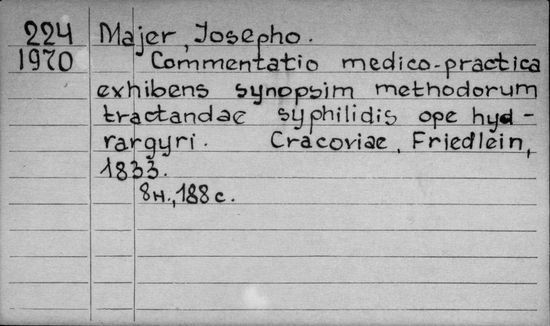 224 Majer, Josepho.
1970 Commentatio medico-practica
exhibens synopsim methodorum
tractandae syphilidis ope hyd-
rargyri. Cracoviae, Friedlein,
1833.
8н., 188 с.